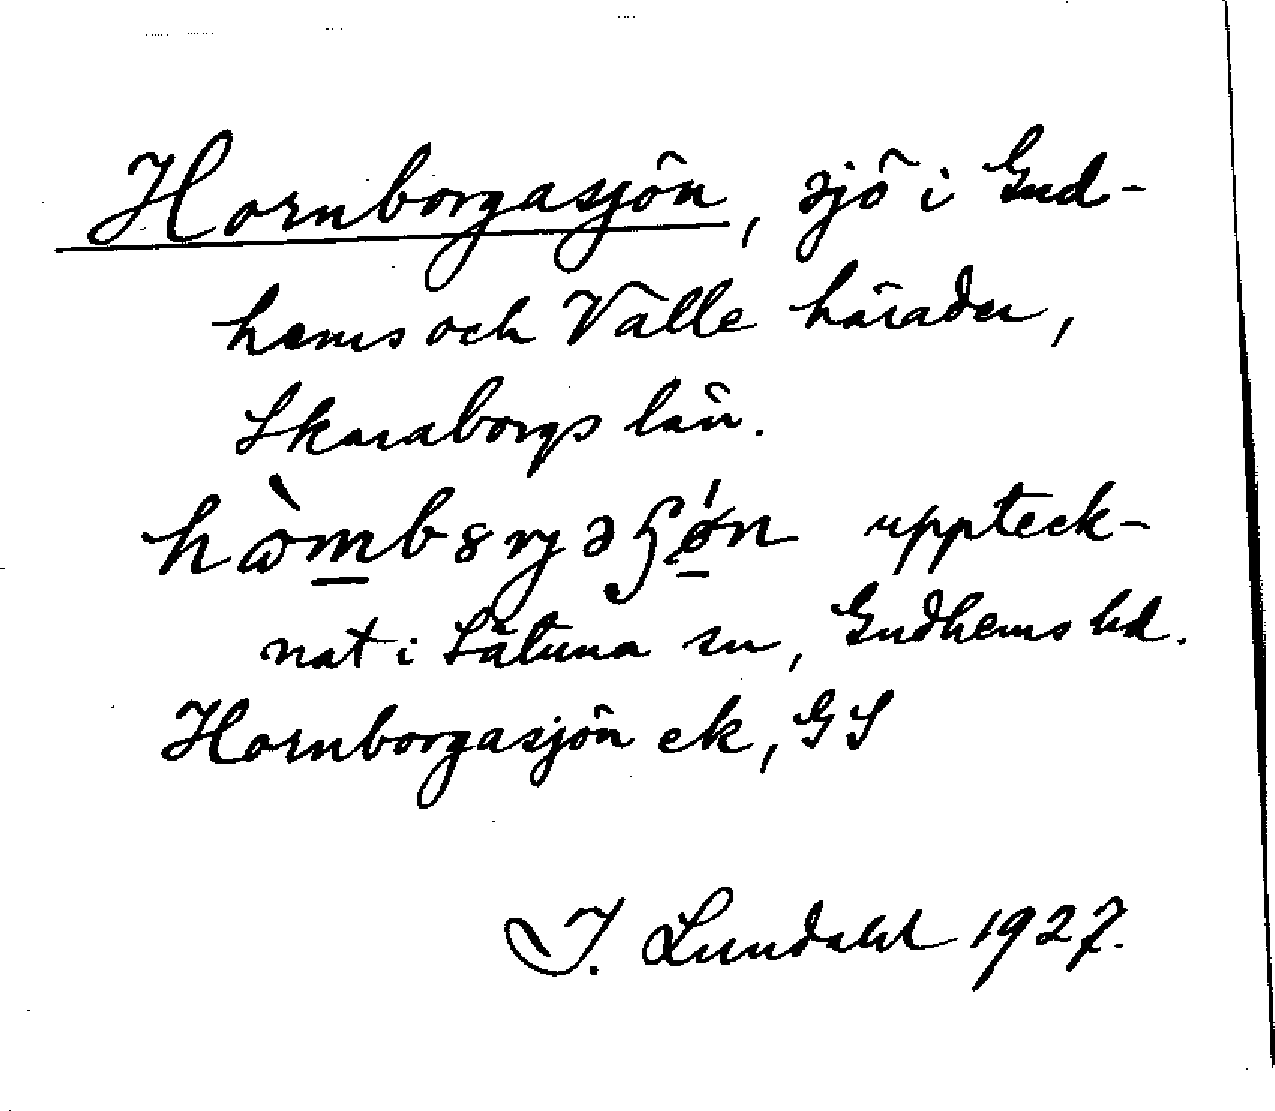 Hornborgasjön, sjö i Gud-
hems och Valle härader,
Skaraborgs län.
uppteck-
nat i Sätuna sn, Gudhems hd.
Hornborgasjön ek, GS
I. Lundahl 1927.